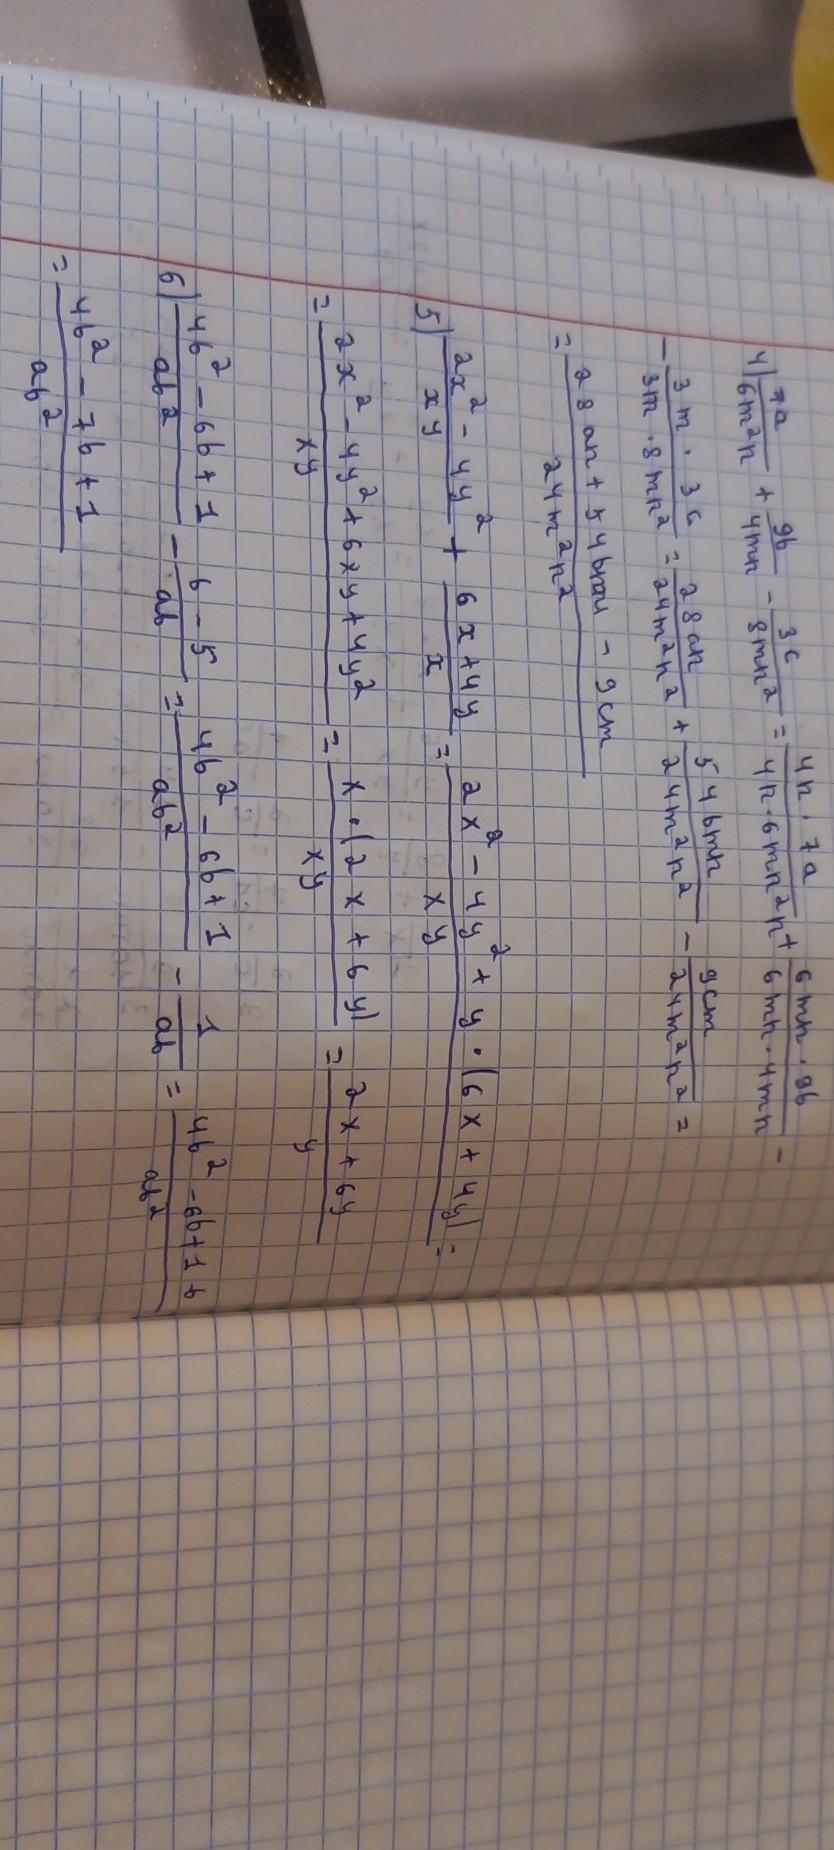 4) 7a/6m²n + 9b/4mn - 3c/8mn² = 4n·7a/4n·6m²n + 6mn·9b/6mn·4mn -
- 3m·3c/3m·8mn² = 28an/24m²n² + 54bmn/24m²n² - 9cm/24m²n² =
= 28an + 54bmn - 9cm/24m²n²
5) 2x² - 4y²/xy + 6x + 4y/x = 2x² - 4y² + y·(6x + 4y)/xy =
= 2x² - 4y² + 6xy + 4y²/xy = x·(2x + 6y)/xy = 2x + 6y/y
6) 4b² - 6b + 1/ab² - 6 - 5/ab = 4b² - 6b + 1/ab² - 1/ab = 4b² - 6b + 1 b/ab²
= 4b² - 7b + 1/ab²